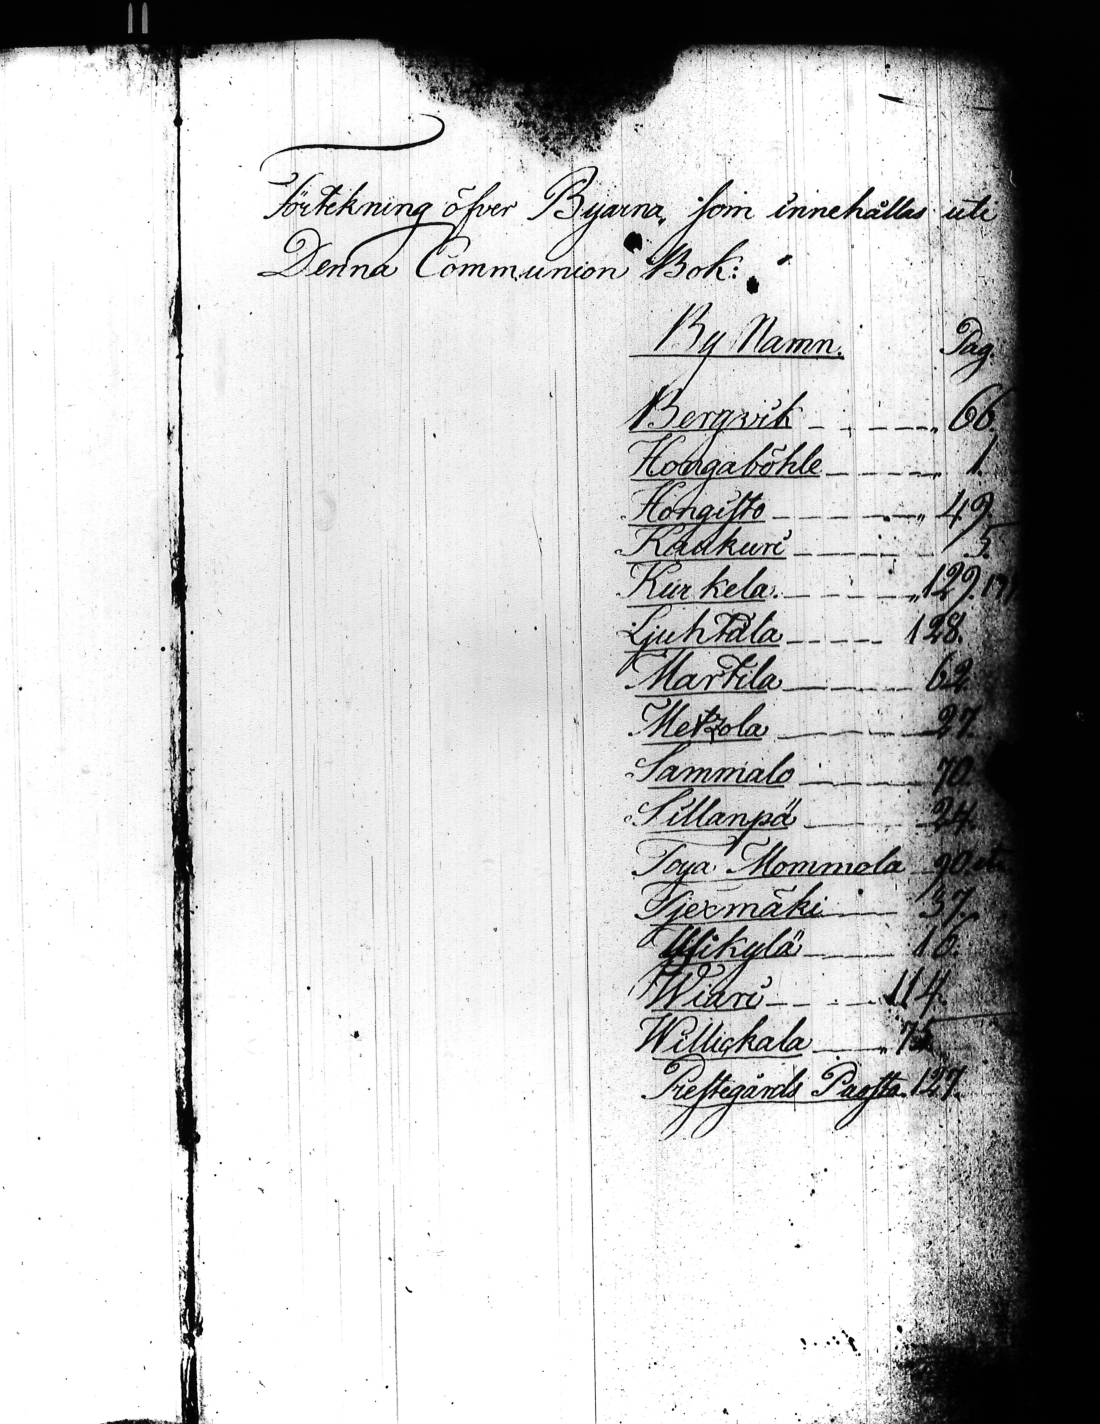 Förtekning öfver Byarna, som innehållas uti
Denna Communion Bok:
By Namn. Pag.
Bergvik 66.
Hongaböhle 1.
Hongisto 49.
Kaukuri 5.
Kurkela. 129.
Ljuhtala 128.
Martila 62
Metzola 27.
Sammalo 70
Sillanpä 24.
Toya Mommola 90
Tjexmäki 37.
Ylikylä 16.
Wiari 114.
Willickala 75
Prestegårds 127.